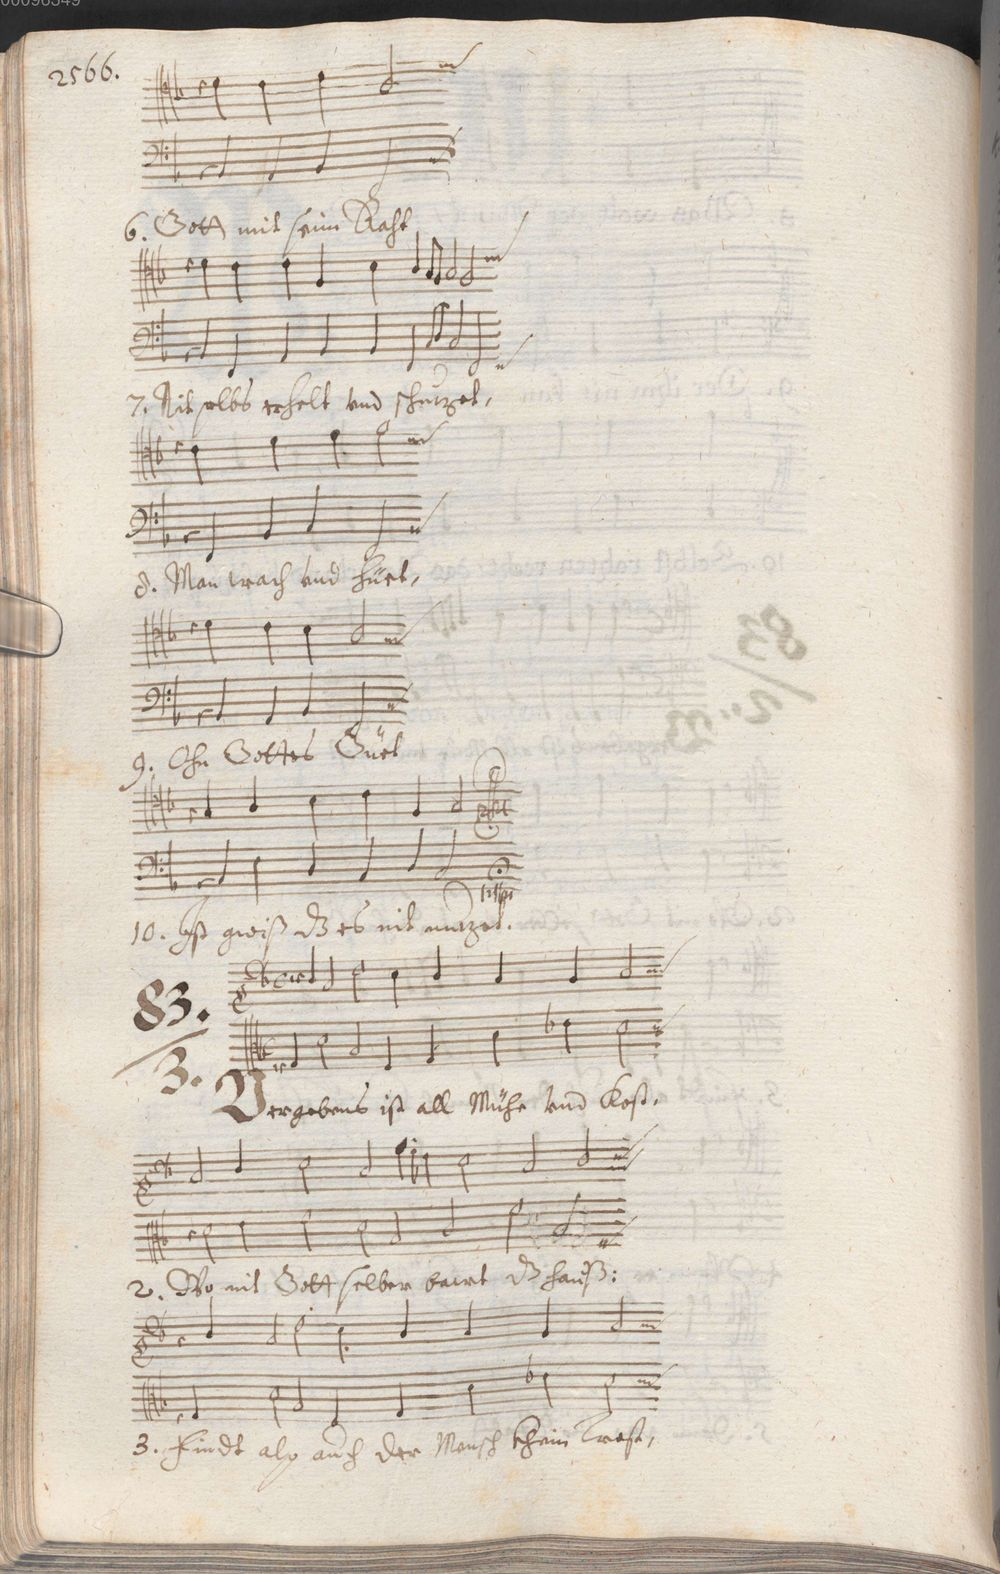 00096349
2566.
6. Gott mit seim Raht
7. Nit selbs erhelt vnd schutzet,
8. Man wach vnd hüet,
9. Ohn Gottes Güet
10. Ist gwiß dz es nit nutzet.
83.
3.
Vergebens ist all Mühe vnd Kost,
2. Wo nit Gott selber bawt dz hauß:
3. Findt also auch der Mensch khein Trost,